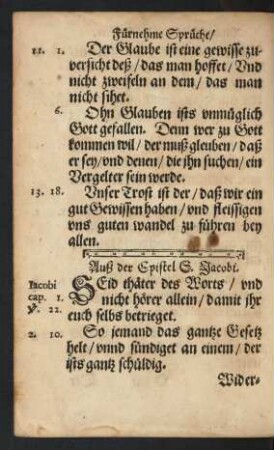 Fürnehme Sprüche/
11. 1. Der Glaube ist eine gewisse zu-
versicht deß/ das man hoffet/ Vnd
nicht zweifeln an dem/ das man
nicht sihet.
6. Ohn Glauben ists vnmüglich
Gott gefallen. Denn wer zu Gott
kommen wil/ der muß gleuben/ daß
er sey/ vnd denen/ die jhn suchen/ ein
Vergelter sein werde.
13. 18. Vnser Trost ist der/ daß wir ein
gut Gewissen haben/ vnd fleissigen
vns guten wandel zu führen bey
allen.
Auß der Epistel S. Jacobi.
Iacobi SEid thäter des Worts/ vnd
cap. 1. nicht hörer allein/ damit jhr
℣. 22. euch selbs betrieget.
2. 10. So jemand das gantze Gesetz
helt/ vnnd sündiget an einem/ der
ists gantz schüldig.
Wider-